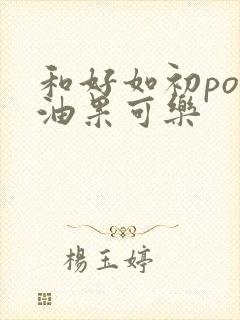 和好如初po
油果可樂
楊玉婷